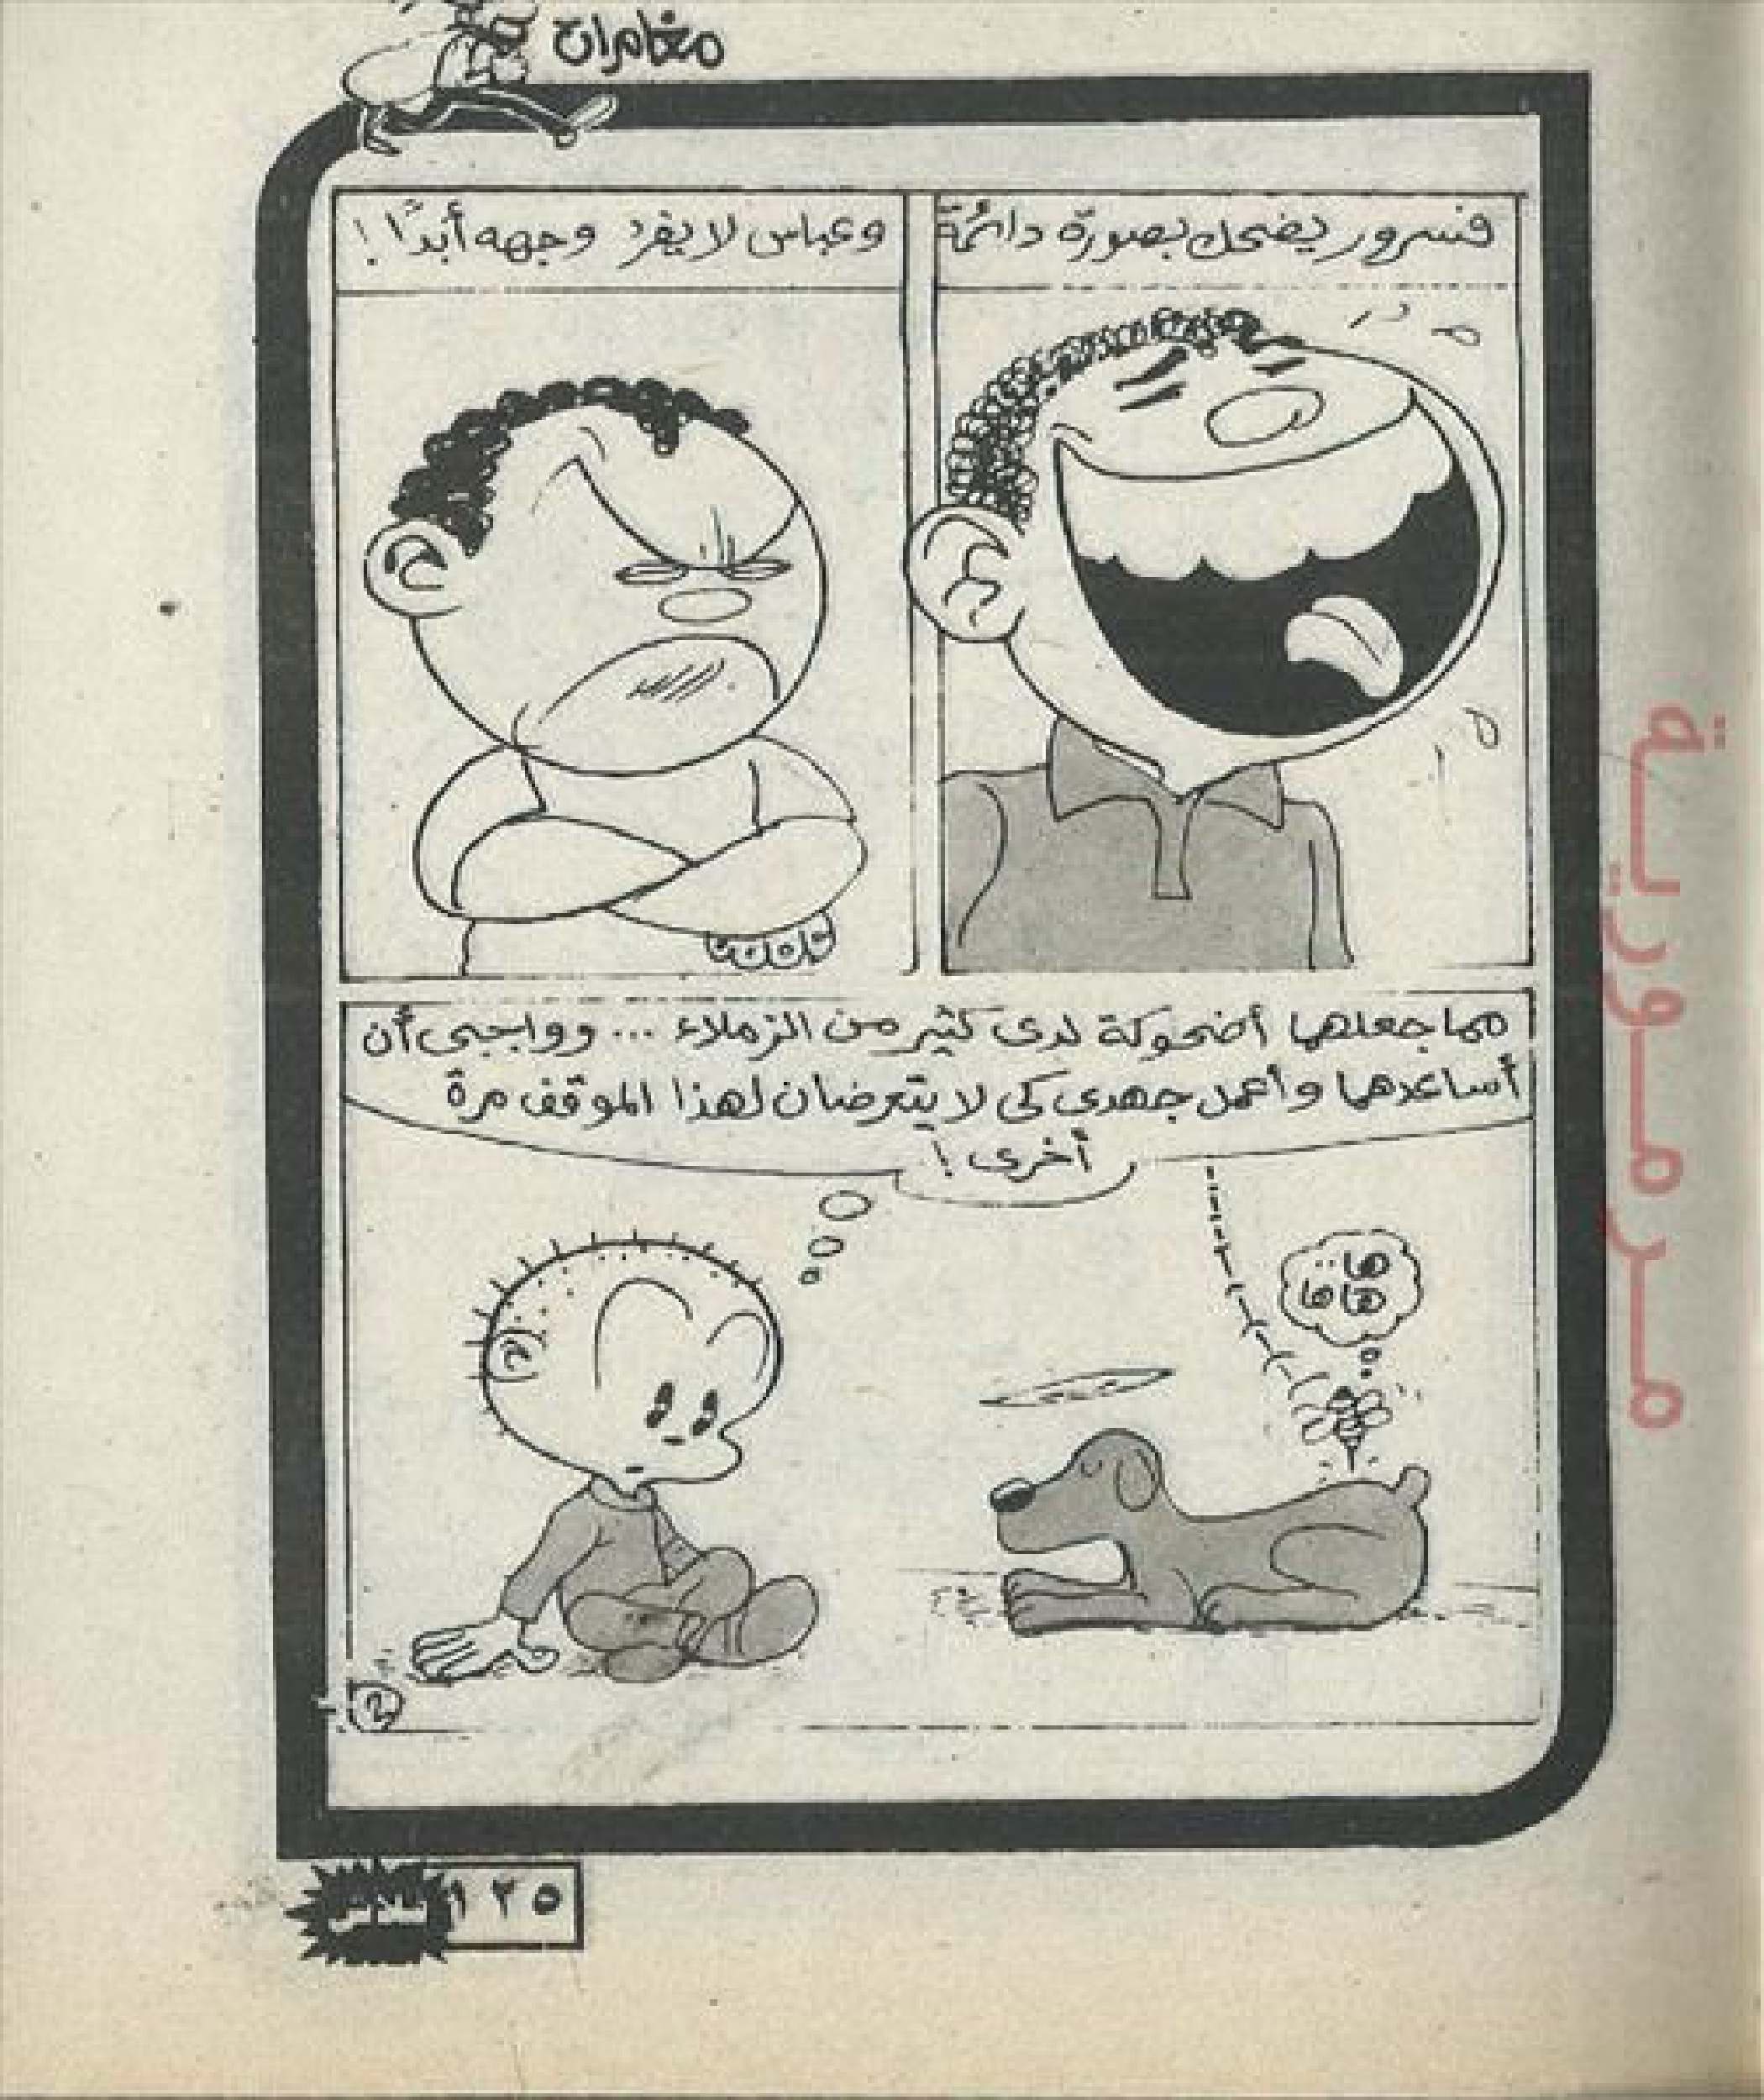 مغامرات
فسرور يضحك بصورة دائمة
وعباس لا يفرد وجهه أبدًا !
مما جعلهما أضحوكة لدى كثير من الزملاء ... وواجبى أن
أساعدهما وأعمل جهدى كى لا يتعرضان لهذا الموقف مرة
أخرى !
ها
هاها
2
١٢٥
مرمورية